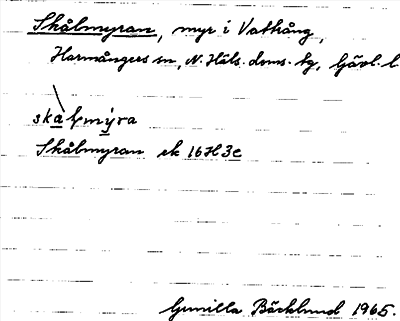 Skålmyran, myr i Vattrång,
Harmångers sn, N. Häls. doms. tg, Gävl. l.
skålmýra
Skålmyran ek 16H3e
Gunilla Bäcklund 1965.